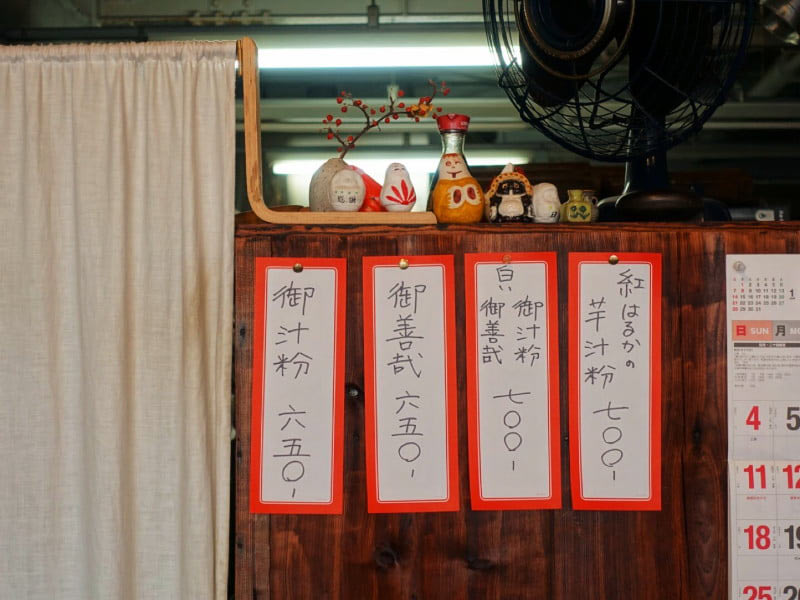 御汁粉 六五〇-
御善哉 六五〇-
白い
御汁粉
御善哉
七〇〇-
紅はるかの
芋汁粉
七〇〇-
1
日 SUN 月 MO
4 5
11 12
18 19
25